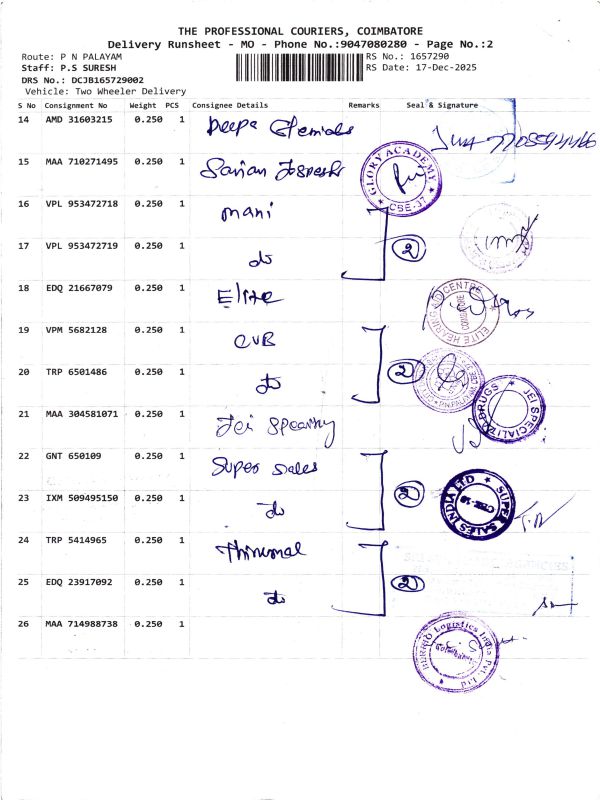 THE PROFESSIONAL COURIERS, COIMBATORE
Delivery Runsheet - MO - Phone No.:9047080280 - Page No.:2
Route: P N PALAYAM RS No.: 1657290
Staff: P.S SURESH RS Date: 17-Dec-2025
DRS No.: DCJB165729002
Vehicle: Two Wheeler Delivery
S No Consignment No Weight PCS Consignee Details Remarks Seal & Signature
14 AMD 31603215 0.250 1 Deepa
15 MAA 710271495 0.250 1 GLORY ACADEMY CBE-37
16 VPL 953472718 0.250 1 mani
17 VPL 953472719 0.250 1 do 2
18 EDQ 21667079 0.250 1 Elite ELITE HEARING AID CENTRE COIMBATORE
19 VPM 5682128 0.250 1 CUB
20 TRP 6501486 0.250 1 do 2
21 MAA 304581071 0.250 1 Jei JEI SPECIALIZED DRUGS
22 GNT 650109 0.250 1 Super Sales
23 IXM 509495150 0.250 1 do 2 SUPER SALES INDIA LTD
24 TRP 5414965 0.250 1 Thirumal
25 EDQ 23917092 0.250 1 do 2
26 MAA 714988738 0.250 1 Logistics India Pvt. Ltd